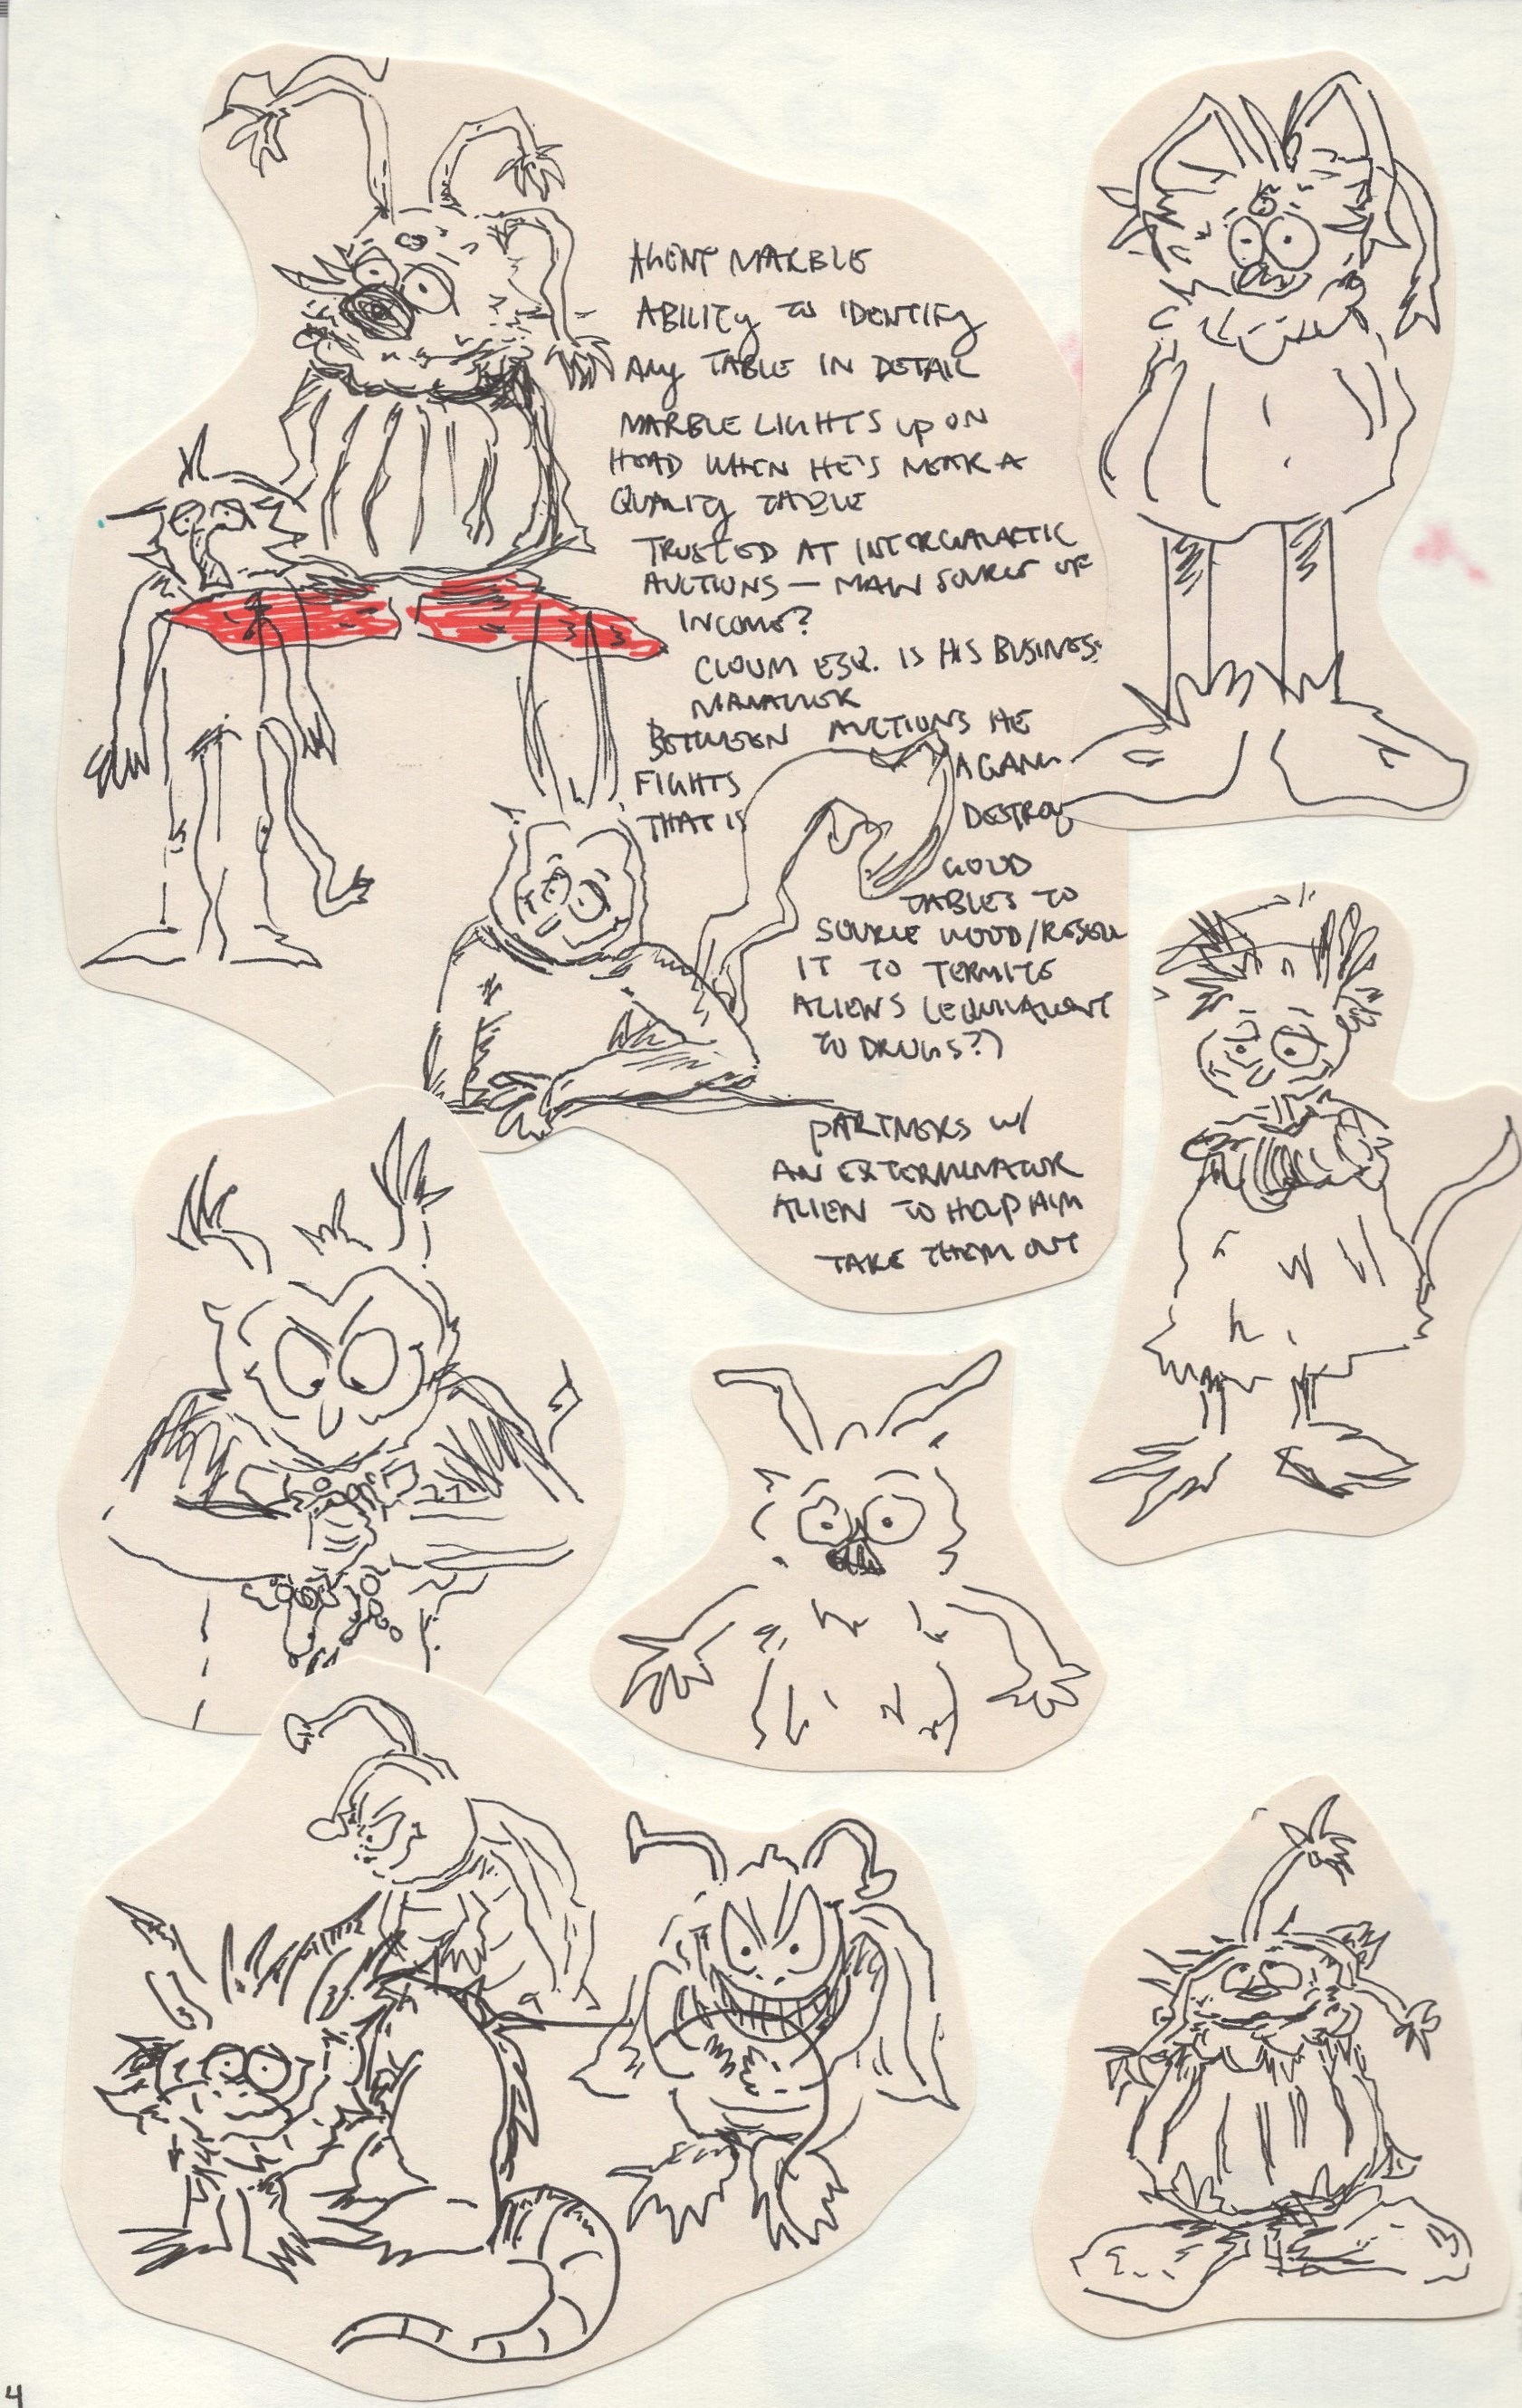 AGENT MARBLE
ABILITY TO IDENTIFY
ANY TABLE IN DETAIL
MARBLE LIGHTS UP ON
HEAD WHEN HE'S NEAR A
QUALITY TABLE
TRUSTED AT INTERGALACTIC
AUCTIONS — MAIN SOURCE OF
INCOME?
CLOUM ESQ. IS HIS BUSINESS
MANAGER
BETWEEN AUCTIONS HE
FIGHTS A GANG
THAT IS DESTROY
GOOD
TABLES TO
SOURCE WOOD/RESELL
IT TO TERMITE
ALIENS (EQUIVALENT
TO DRUGS?)
PARTNERS W/
AN EXTERMINATOR
ALIEN TO HELP HIM
TAKE THEM OUT
4